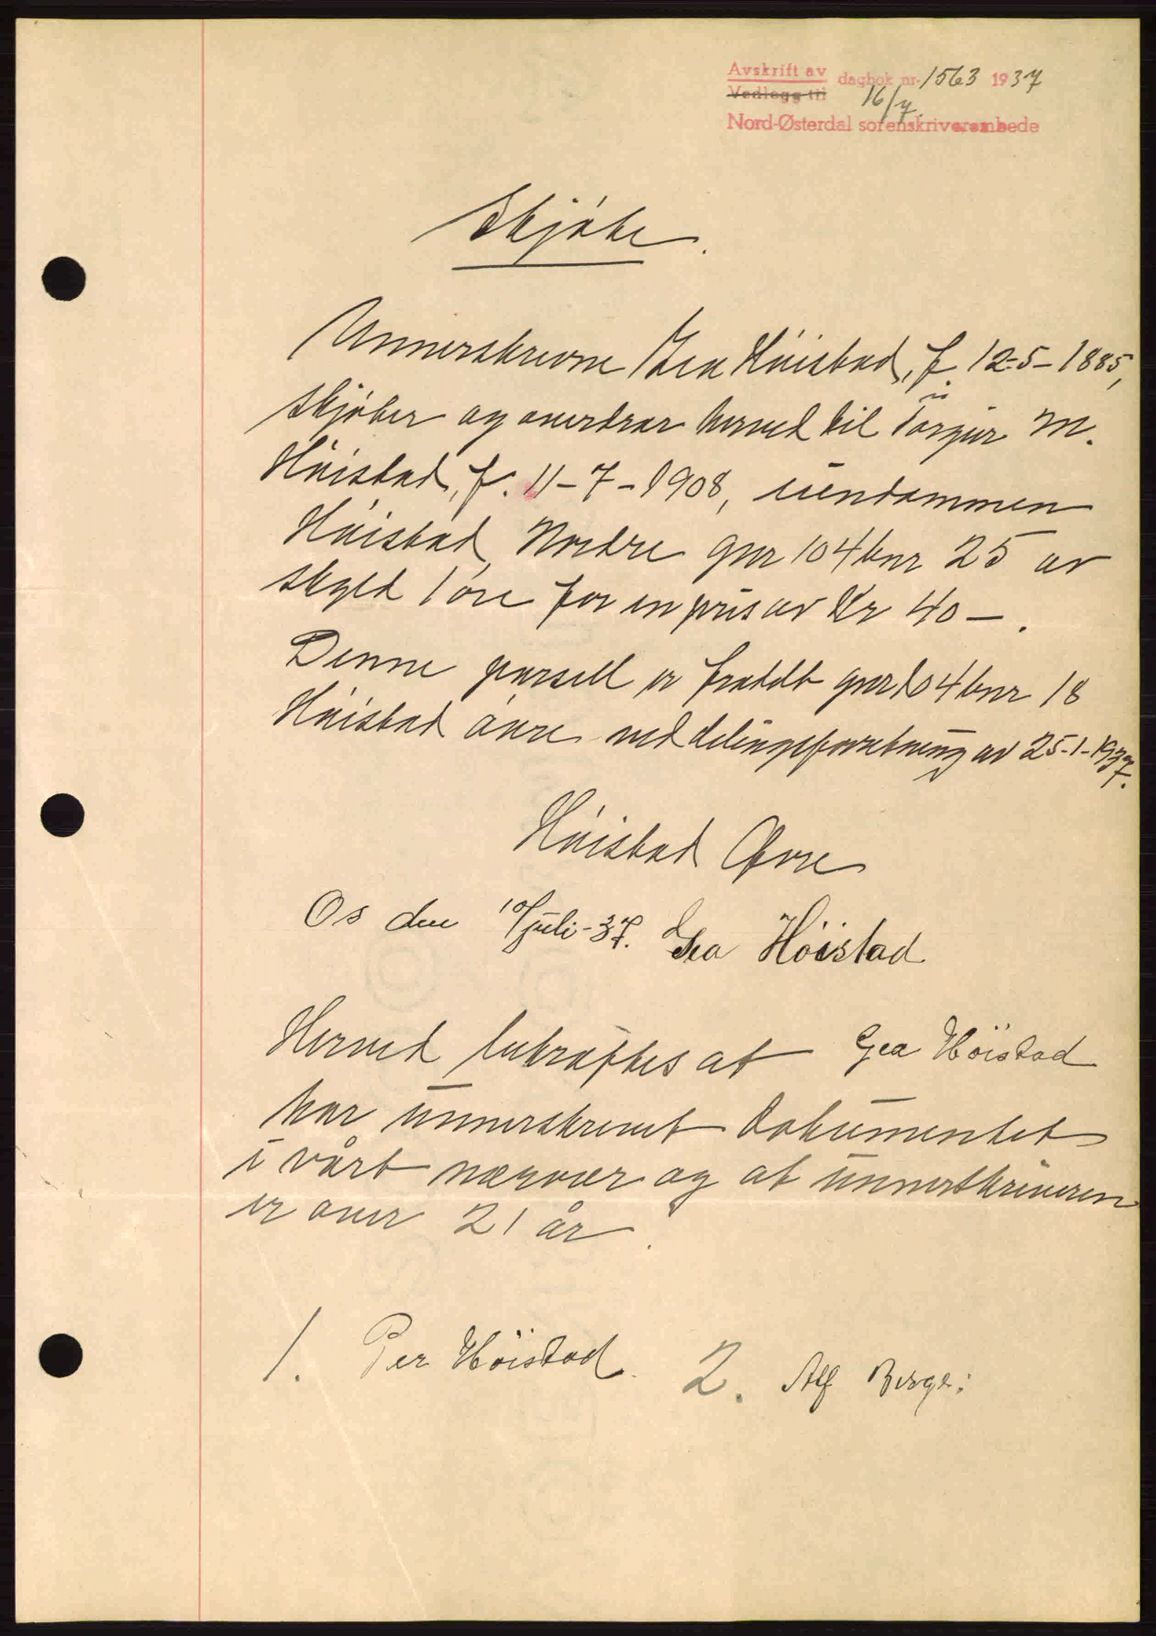 Avskrift av
Vedlegg til
dagbok nr. 1563 1937
16/7.
Nord-Østerdal sorenskriverembede
Skjøte.
Unnerskrevne Gea Höistad, f. 12-5-1885,
skjøter og overdrar herved til Torgeir M.
Höistad, f. 11-7-1908, eiendommen
Höistad Nordre gnr 104 bnr 25 av
skyld 1 øre for en pris av Kr 40-.
Denne parsell er fradelt gnr 104 bnr 18
Höistad övre ved delingsforretning av 25-1-1937.
Höistad Øvre
Os den 10/juli-37. Gea Höistad
Herved bekræftes at Gea Höistad
har unnerskrevet dokumentet
i vårt nærvær og at unnerskriveren
er over 21 år.
1. Per Höistad. 2. Alf Berge: